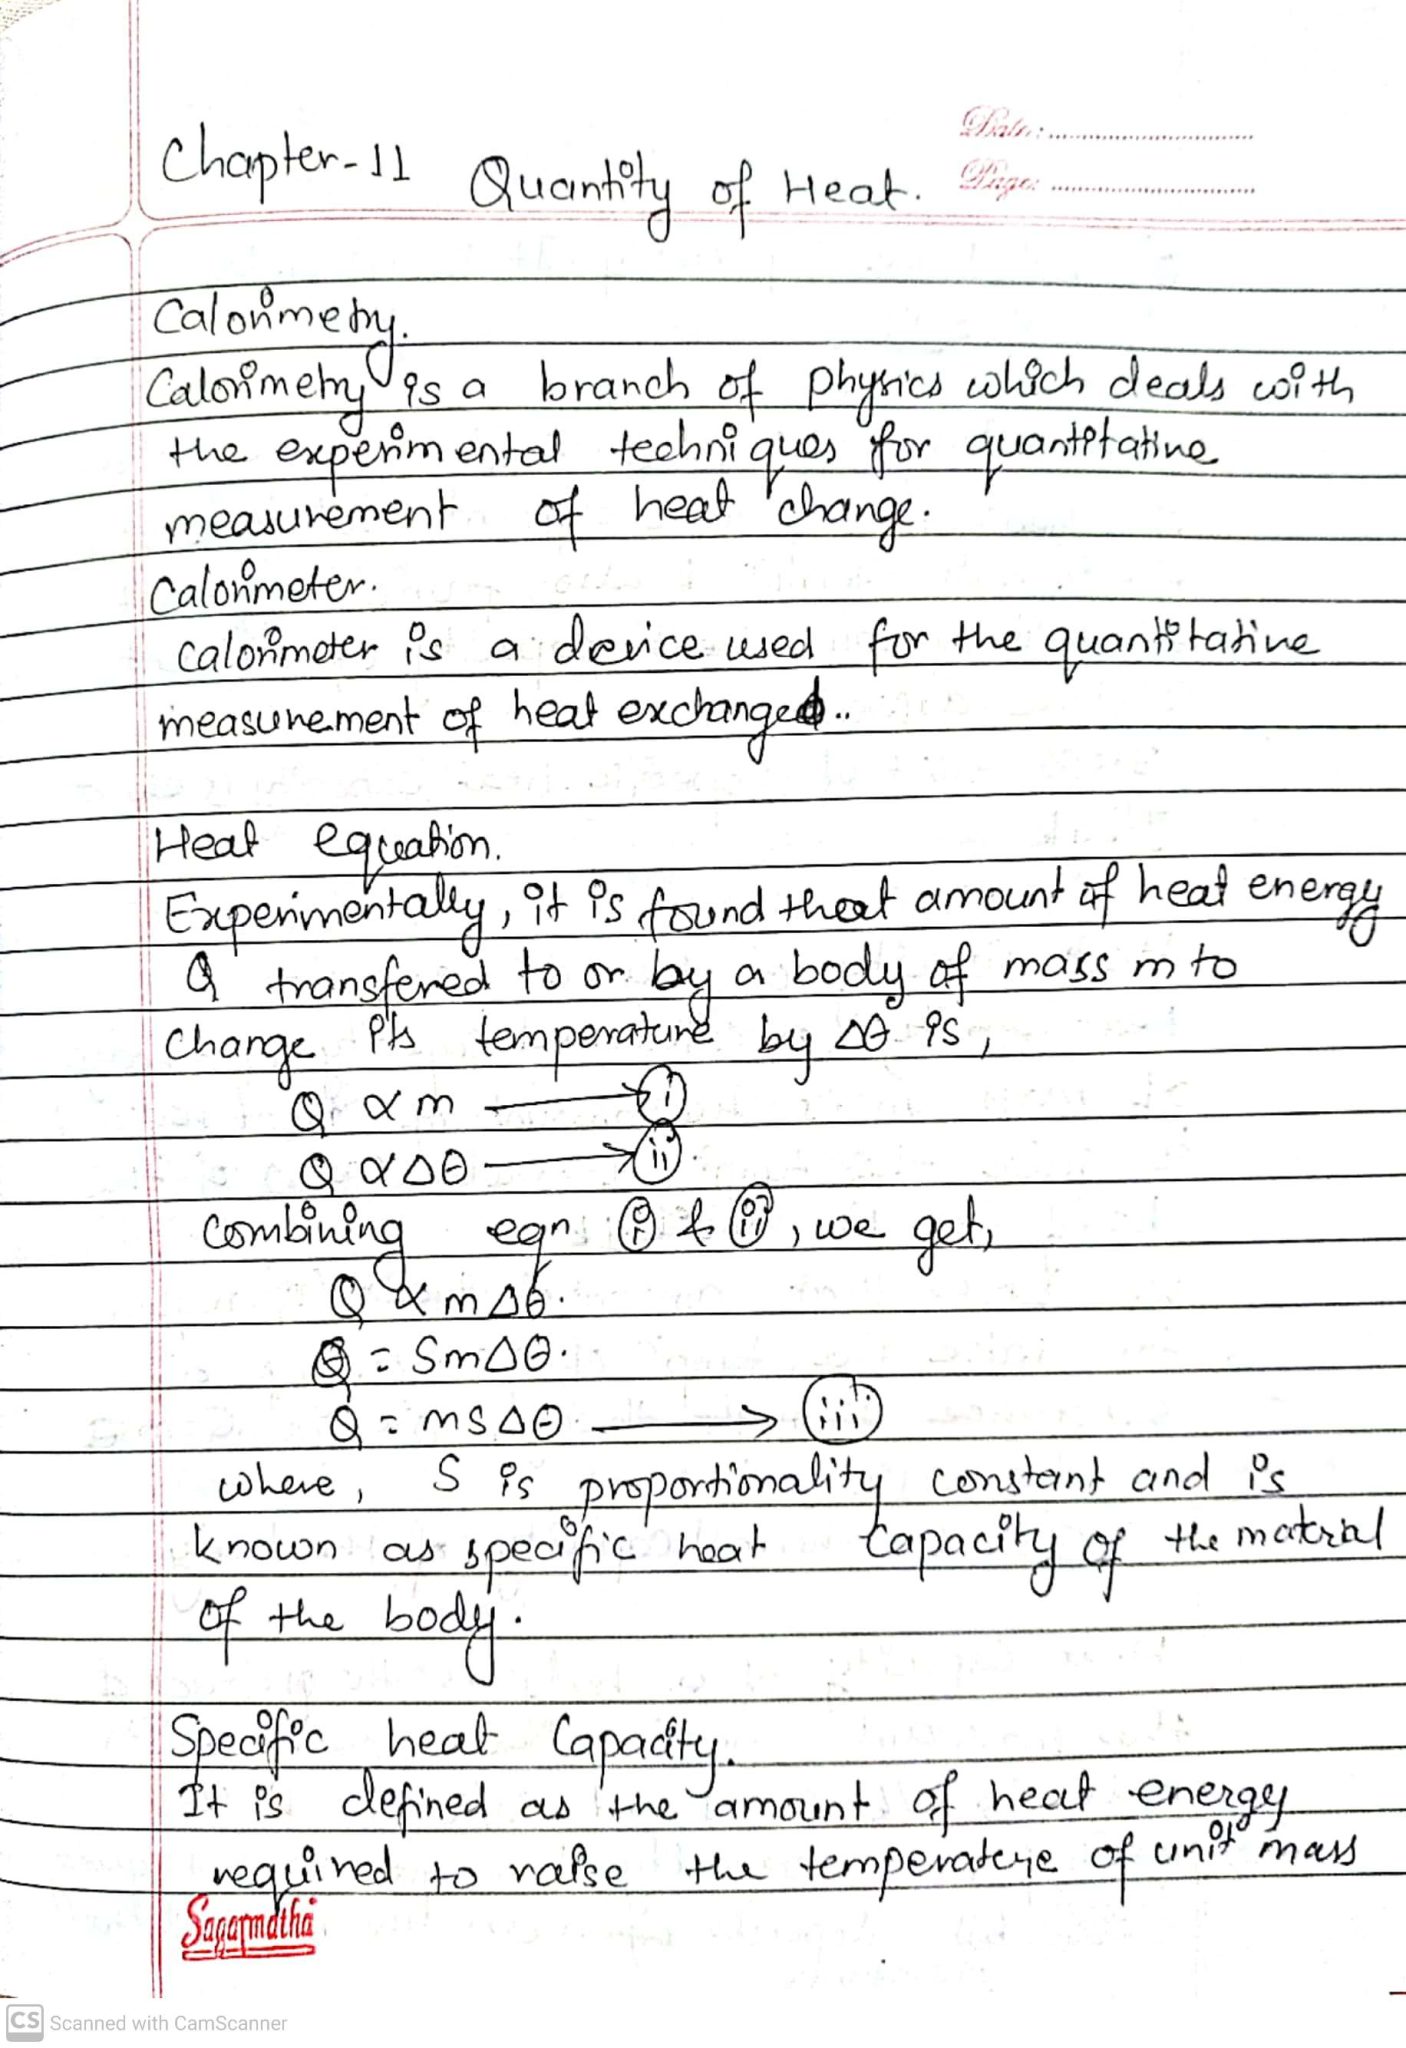 Date: ..............................
Chapter-11 Quantity of Heat.
Page: ..............................
Calorimetry.
Calorimetry is a branch of physics which deals with
the experimental techniques for quantitative
measurement of heat change.
Calorimeter.
Calorimeter is a device used for the quantitative
measurement of heat exchanged..
Heat equation.
Experimentally, it is found that amount of heat energy
Q transfered to or by a body of mass m to
change it's temperature by Δθ is,
Q ∝ m ⟶ (i)
Q ∝ Δθ ⟶ (ii)
Combining eqn (i) & (ii), we get,
Q ∝ mΔθ.
Q = SmΔθ.
Q = msΔθ ⟶ (iii)
where, S is proportionality constant and is
known as specific heat capacity of the matrial
of the body.
Specific heat Capacity.
It is defined as the amount of heat energy
required to raise the temperature of unit mass
Sagarmatha
CS Scanned with CamScanner